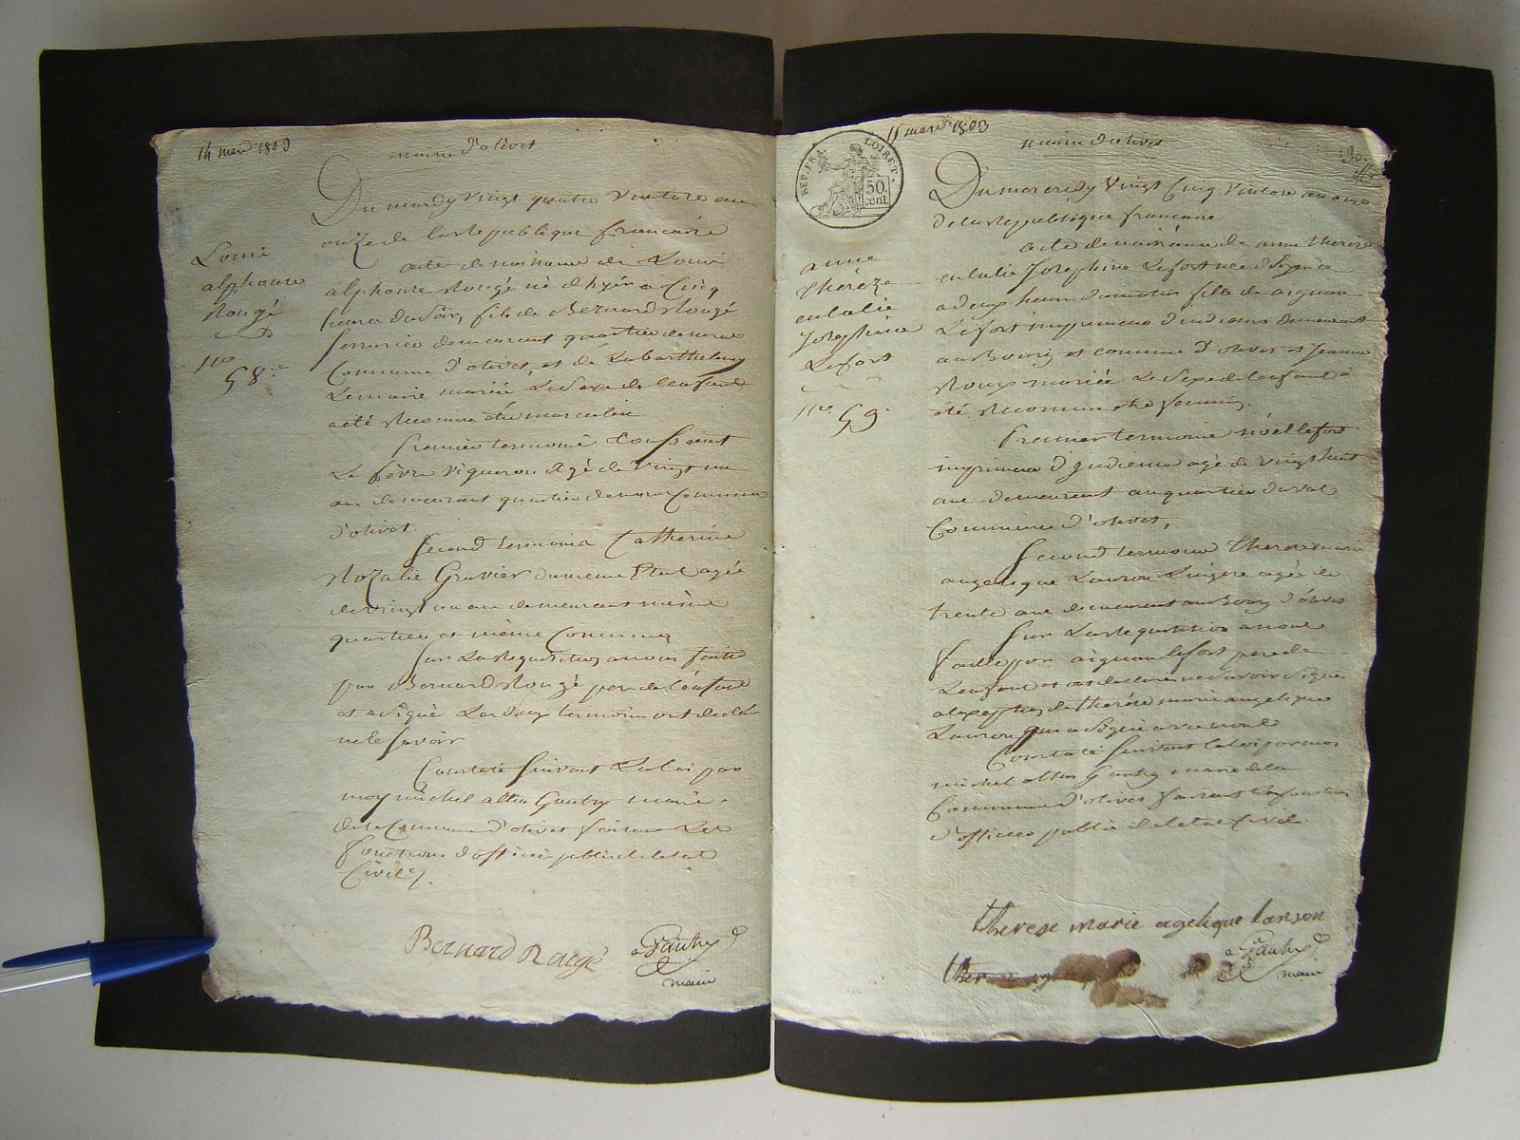 14 mars 1803
mairie d'olivet
Du mardy vingt quatre ventose an
onze de la Republique francaise
acte de naissance de Louis
alphonse Rougé né d'hyér a Cinq
heures du soir, fils de Bernard Rougé
serrurier demeurant quartier de
Commune d'olivet, et de Barthelemy
Lemaire mariée Le Sexe de l'enfant
a été Reconnu être masculin
Premier temoin Toussaint
Le fèvre vigneron agé de vingt un
ans demeurant quartier de Commune
d'olivet
Second temoin Catherine
Rozalie Gravier du meme Etat agée
de vingt un ans demeurant même
quartier et même Commune
Sur La Requisition a nous faite
par Bernard Rougé pere de L'enfant
et a Signé Les deux temoins ont declaré
ne le Savoir
Constaté Suivant La Loi par
moy michel altin Gautry maire
de la Commune d'olivet faisant Les
fonctions d'officier public de letat
Civil
Louis
alphonse
Rougé
no
58
Bernard Rougé
a Gautry
maire
15 mars 1803
mairie d'olivet
REP. FRA. LOIRET.
50
CENT.
Du mercredy vingt Cinq ventose an onze
de la Republique francaise
acte de naissance de anne therese
eulalie Josephine Lefort née
a deux heures du matin fille de aignan
Lefort imprimeur d'indienne demeurant
au Bourg et commune d'olivet et Jeanne
Roux mariée Le Sexe de lenfant a
été Reconnu etre feminin
Premier temoin noël lefort
imprimeur d'Indienne agé de vingt huit
ans demeurant au quartier du val
Commune d'olivet,
Second temoin therese marie
angelique Lanson Lingere agée de
trente ans demeurant au Bourg d'olivet
Sur La Requisition a nous
faitte par aignan lefort pere de
Lenfant et a declaré ne Savoir Signer
a lexeption de thérése marie angelique
Lanson qui a Signé avec nous
Constaté Suivant la loi par moi
michel altin Gautry maire de la
Commune d'olivet faisant les fonctions
d'officier public de letat Civil
anne
thérèze
eulalie
Josephine
Lefort
no 59
therese marie agelique lanson
ther
a Gautry
maire